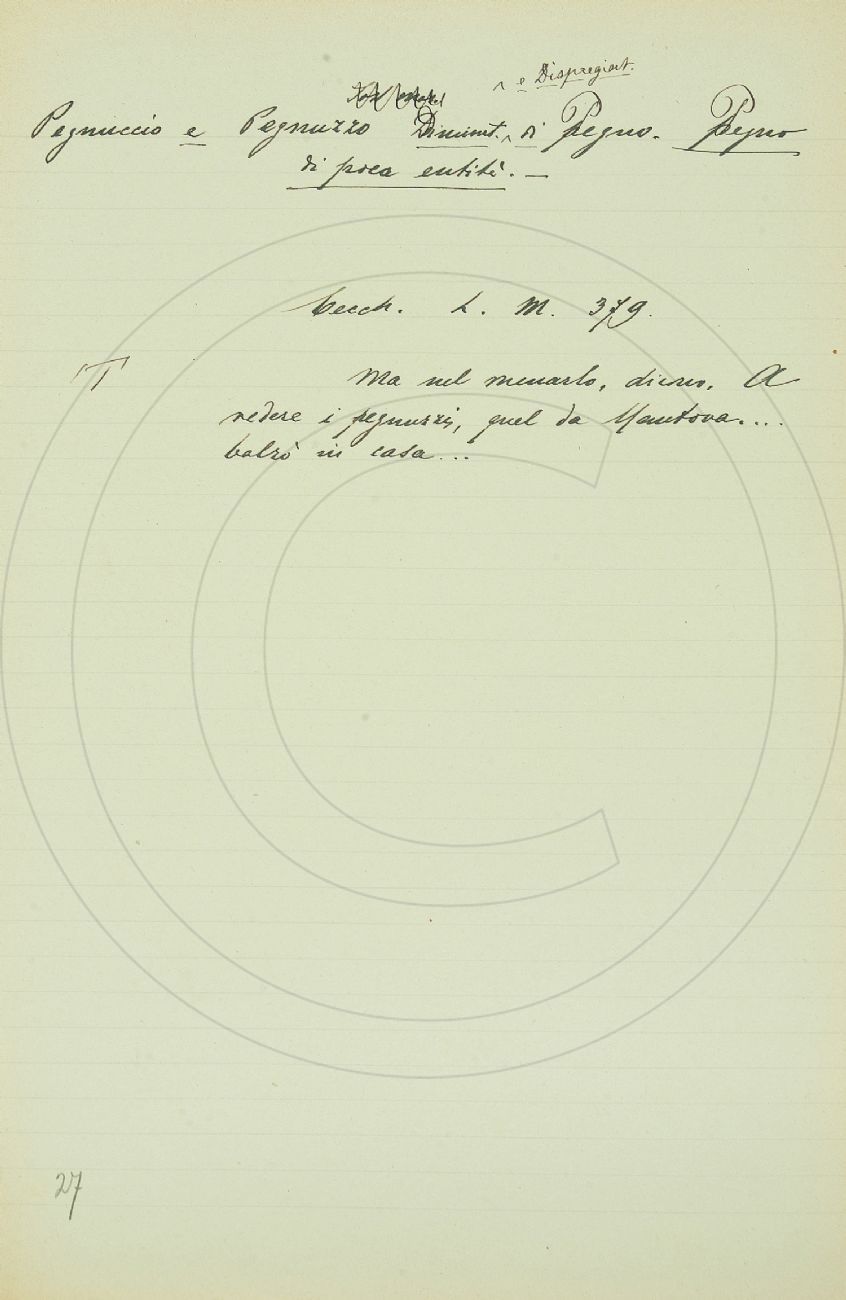 ^ e Dispregiat.
Pegnuccio e Pegnuzzo Diminut. ^ di Pegno. Pegno
di poca entità. —
Cecch. L. M. 379.
T Ma nel menarlo, dicono, A
vedere i pegnuzzi, quel da Mantova....
balzò in casa...
27